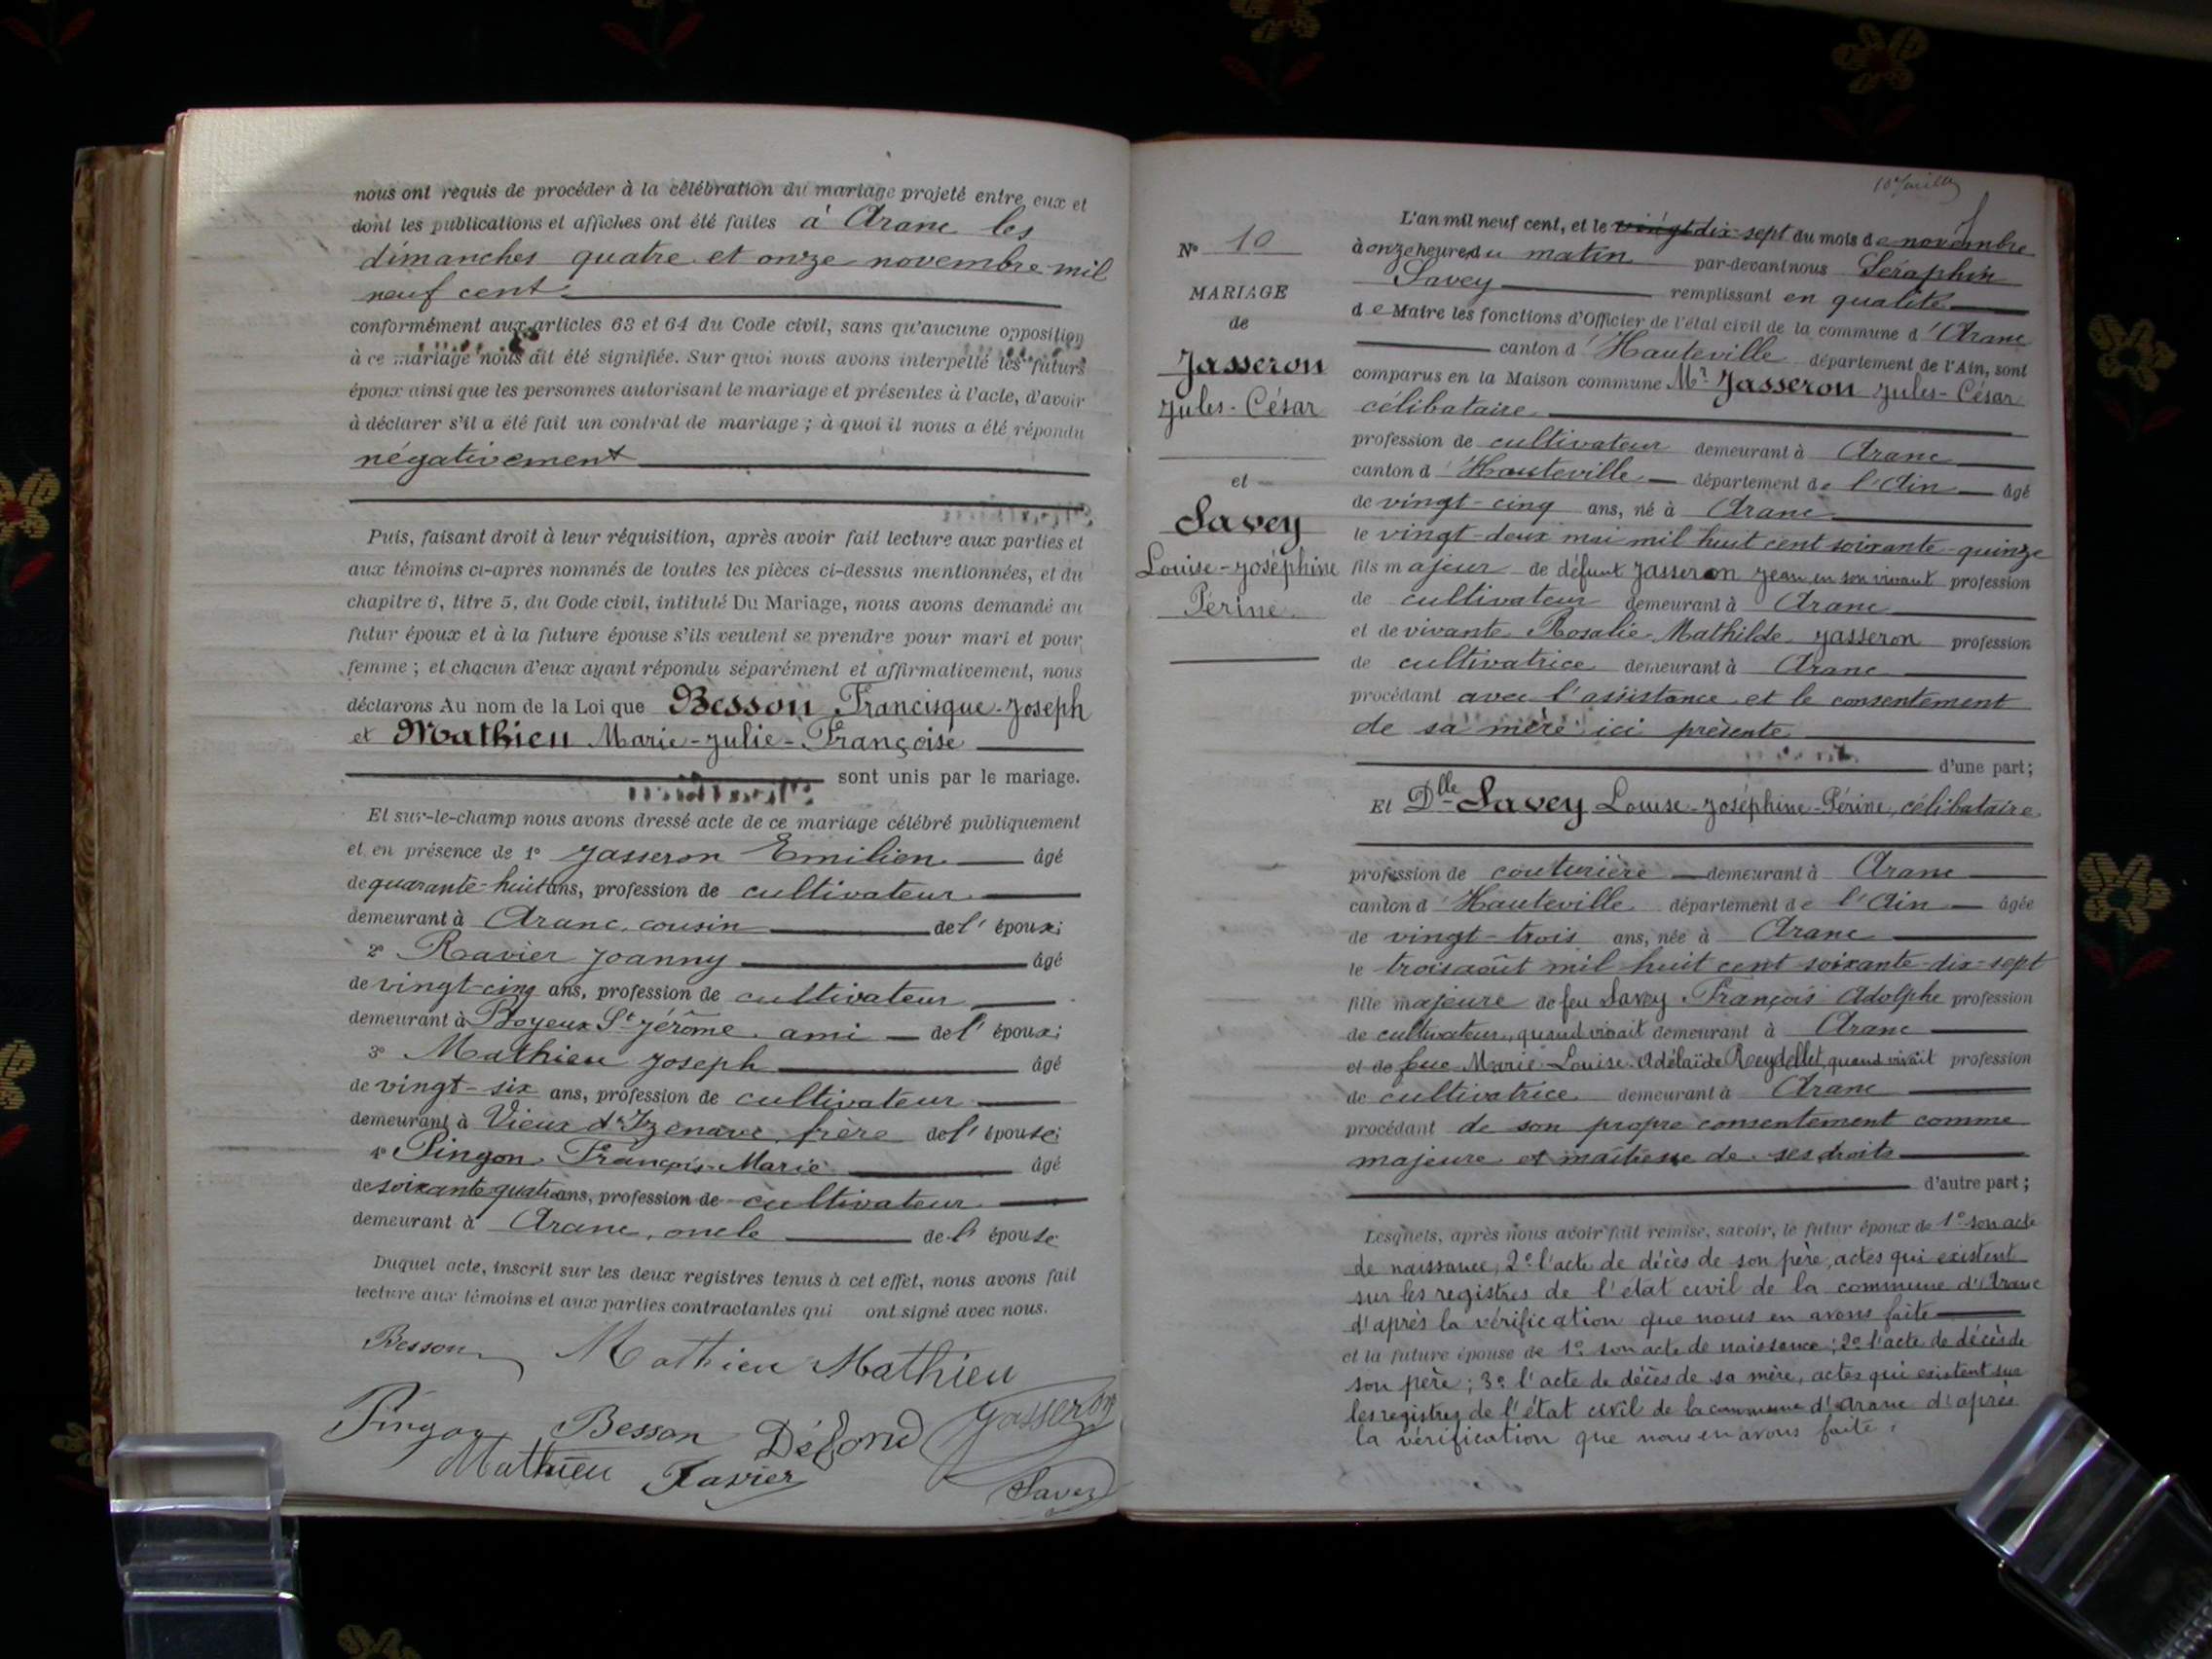 nous ont requis de procéder à la célébration du mariage projeté entre eux et
dont les publications et affiches ont été faites à Aranc les
dimanches quatre et onze novembre mil
neuf cent
conformément aux articles 63 et 64 du Code civil, sans qu'aucune opposition
à ce mariage nous ait été signifiée. Sur quoi nous avons interpellé les futurs
époux ainsi que les personnes autorisant le mariage et présentes à l'acte, d'avoir
à déclarer s'il a été fait un contrat de mariage ; à quoi il nous a été répondu
négativement
Puis, faisant droit à leur réquisition, après avoir fait lecture aux parties et
aux témoins ci-après nommés de toutes les pièces ci-dessus mentionnées, et du
chapitre 6, titre 5, du Code civil, intitulé Du Mariage, nous avons demandé au
futur époux et à la future épouse s'ils veulent se prendre pour mari et pour
femme ; et chacun d'eux ayant répondu séparément et affirmativement, nous
déclarons Au nom de la Loi que Besson Francisque-Joseph
et Mathieu Marie-Julie-Françoise
sont unis par le mariage.
Et sur-le-champ nous avons dressé acte de ce mariage célébré publiquement
et en présence de 1° Jasseron Emilien âgé
de quarante-huit ans, profession de cultivateur
demeurant à Aranc, cousin de l'époux;
2° Ravier Joanny âgé
de vingt-cinq ans, profession de cultivateur
demeurant à Boyeux St Jérôme, ami de l'époux;
3° Mathieu Joseph âgé
de vingt-six ans, profession de cultivateur
demeurant à Vieux d'Izenave, frère de l'épouse;
4° Pingon François-Marie âgé
de soixante quatre ans, profession de cultivateur
demeurant à Aranc, oncle de l'épouse
Duquel acte, inscrit sur les deux registres tenus à cet effet, nous avons fait
lecture aux témoins et aux parties contractantes qui ont signé avec nous.
Besson Mathieu Mathieu
Pingon Besson Jasseron
Mathieu Ravier Savey
N° 10
MARIAGE
de
Jasseron
Jules-César
et
Savey
Louise-Joséphine
Périne
L'an mil neuf cent, et le dix-sept du mois de novembre
à onze heures du matin par-devant nous Séraphin
Savey remplissant en qualité
de Maire les fonctions d'Officier de l'état civil de la commune d'Aranc
canton d'Hauteville département de l'Ain, sont
comparus en la Maison commune Mr Jasseron Jules-César
célibataire
profession de cultivateur demeurant à Aranc
canton d'Hauteville département de l'Ain âgé
de vingt-cinq ans, né à Aranc
le vingt-deux mai mil huit cent soixante-quinze
fils majeur de défunt Jasseron Jean en son vivant profession
de cultivateur demeurant à Aranc
et de vivante Rosalie-Mathilde Jasseron profession
de cultivatrice demeurant à Aranc
procédant avec l'assistance et le consentement
de sa mère ici présente
d'une part;
Et Dlle Savey Louise-Joséphine-Périne, célibataire
profession de couturière demeurant à Aranc
canton d'Hauteville département de l'Ain âgée
de vingt-trois ans, née à Aranc
le trois août mil huit cent soixante-dix-sept
fille majeure de feu Savey François Adolphe profession
de cultivateur, quand vivait demeurant à Aranc
et de feue Marie-Louise-Adélaïde Reydellet quand vivait profession
de cultivatrice demeurant à Aranc
procédant de son propre consentement comme
majeure et maîtresse de ses droits
d'autre part;
Lesquels, après nous avoir fait remise, savoir, le futur époux de 1° son acte
de naissance, 2° l'acte de décès de son père, actes qui existent
sur les registres de l'état civil de la commune d'Aranc
d'après la vérification que nous en avons faite
et la future épouse de 1° son acte de naissance ; 2° l'acte de décès de
son père ; 3° l'acte de décès de sa mère, actes qui existent sur
les registres de l'état civil de la commune d'Aranc d'après
la vérification que nous en avons faite.